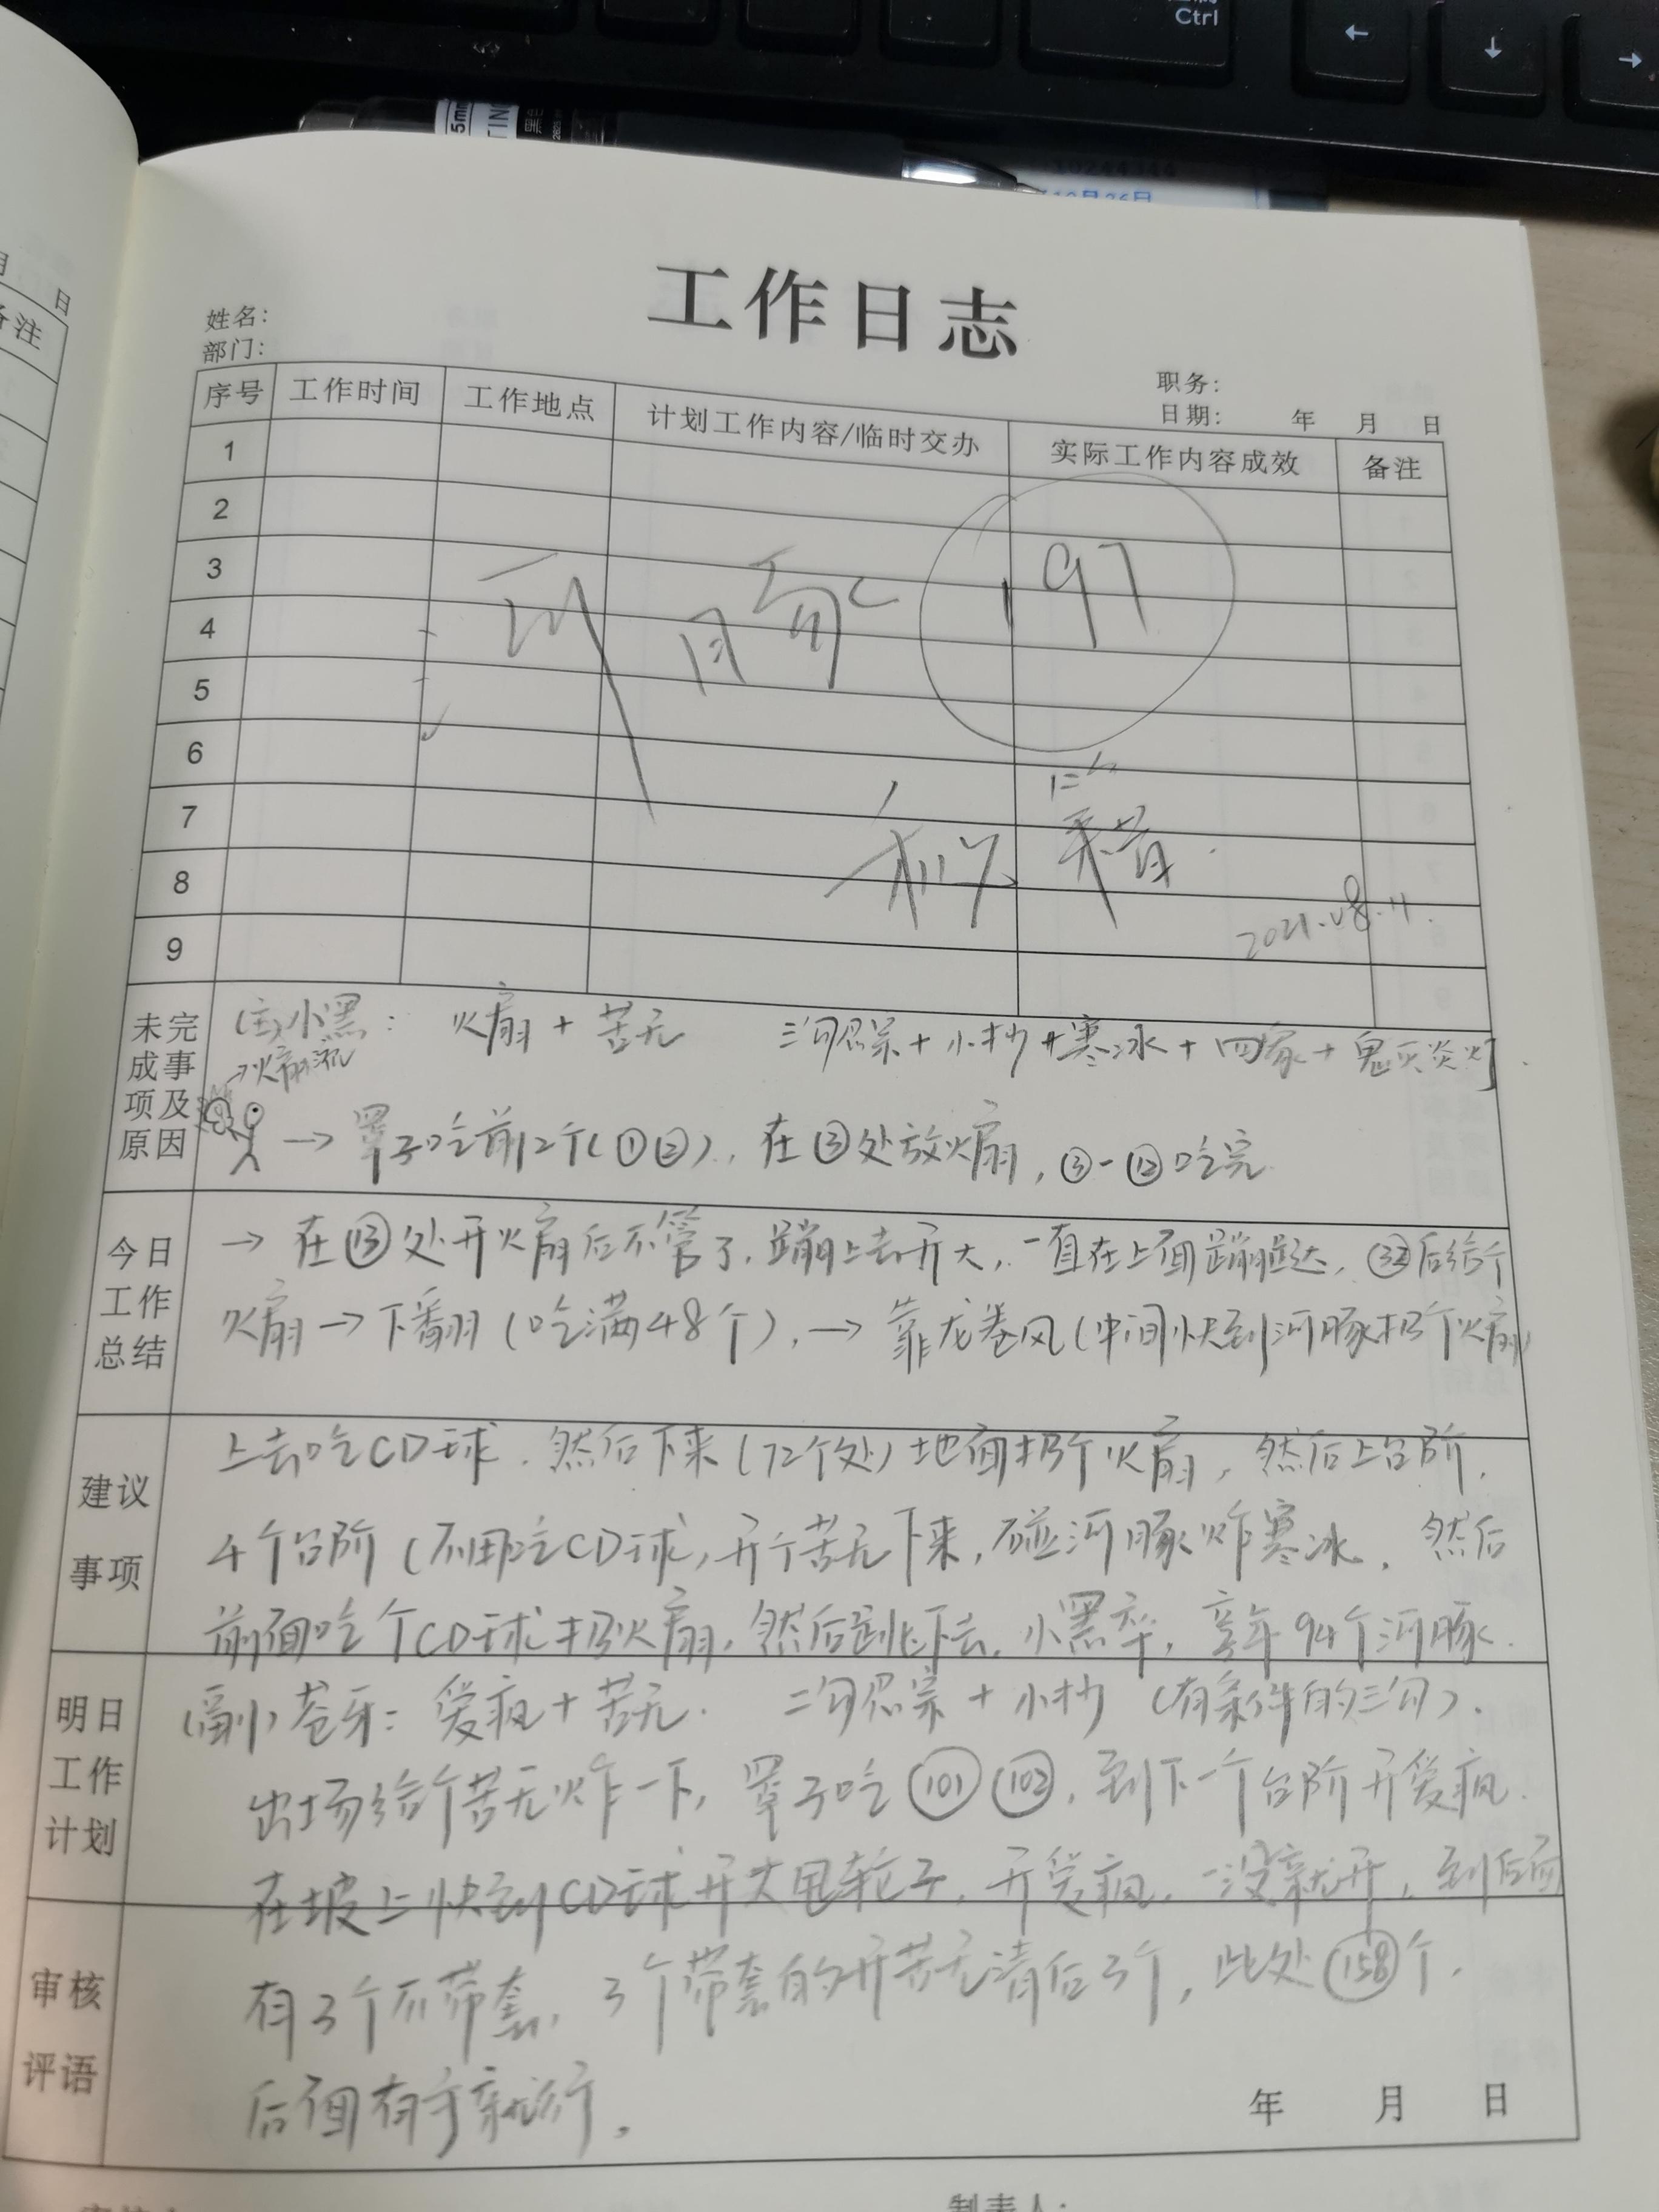 Ctrl
5mm
TING
黑色
10244344
10月26日
月 日
备注
工作日志
姓名:
部门:
职务:
日期: 年 月 日
序号 工作时间 工作地点 计划工作内容/临时交办 实际工作内容成效 备注
1
2
3
4
5
6
7
8
9
河豚 197
2021.08.11.
未完成事项及原因
(主)小黑: 火扇+苦无 三勾忍宗+小抄+寒冰+四家+鬼灭炎灯.
→火扇流
→罩子吃前12个(①②), 在③处放火扇, ③-⑫吃完
今日工作总结
→在⑬处开火扇后不管了, 蹦上去开大, 一直在上面蹦跶, ㉝后给个
火扇→下翻(吃满48个), →靠龙卷风(中间快到河豚扔个火扇)
建议事项
上去吃CD球. 然后下来(72个处)地面扔个火扇, 然后上台阶,
4个台阶(不用吃CD球, 开个苦无下来, 碰河豚炸寒冰. 然后
前面吃个CD球扔火扇, 然后跳下去. 小黑卒, 享年94个河豚.
明日工作计划
(副)苍牙: 爱疯+苦无. 二勾忍宗+小抄 (有条件的三勾).
出场给个苦无炸一下, 罩子吃(101)(102), 到下一个台阶开爱疯.
在坡上快到CD球开大甩轮子, 开爱疯, 一没就开, 到后面
审核评语
有3个不带套, 3个带套的开苦无清后3个, 此处(158)个.
后面有手就行.
年 月 日
制表人: